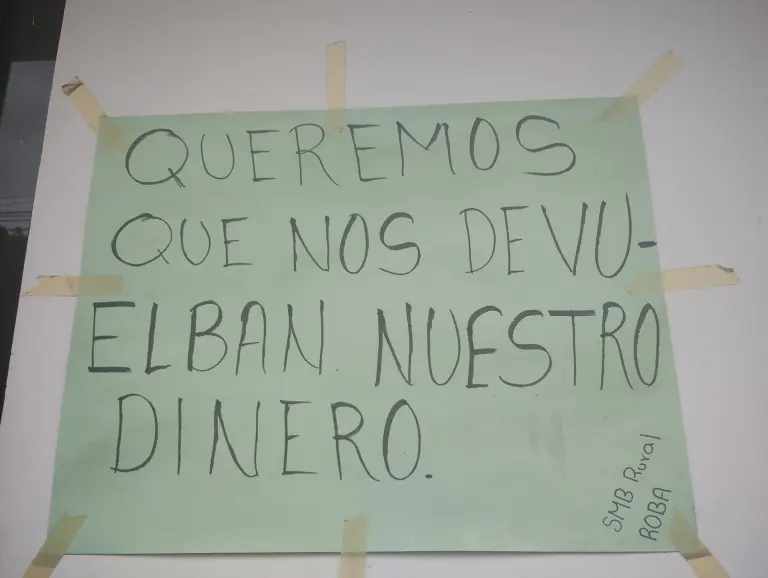 QUEREMOS
QUE NOS DEVU-
ELBAN NUESTRO
DINERO.
SMB Rural
ROBA